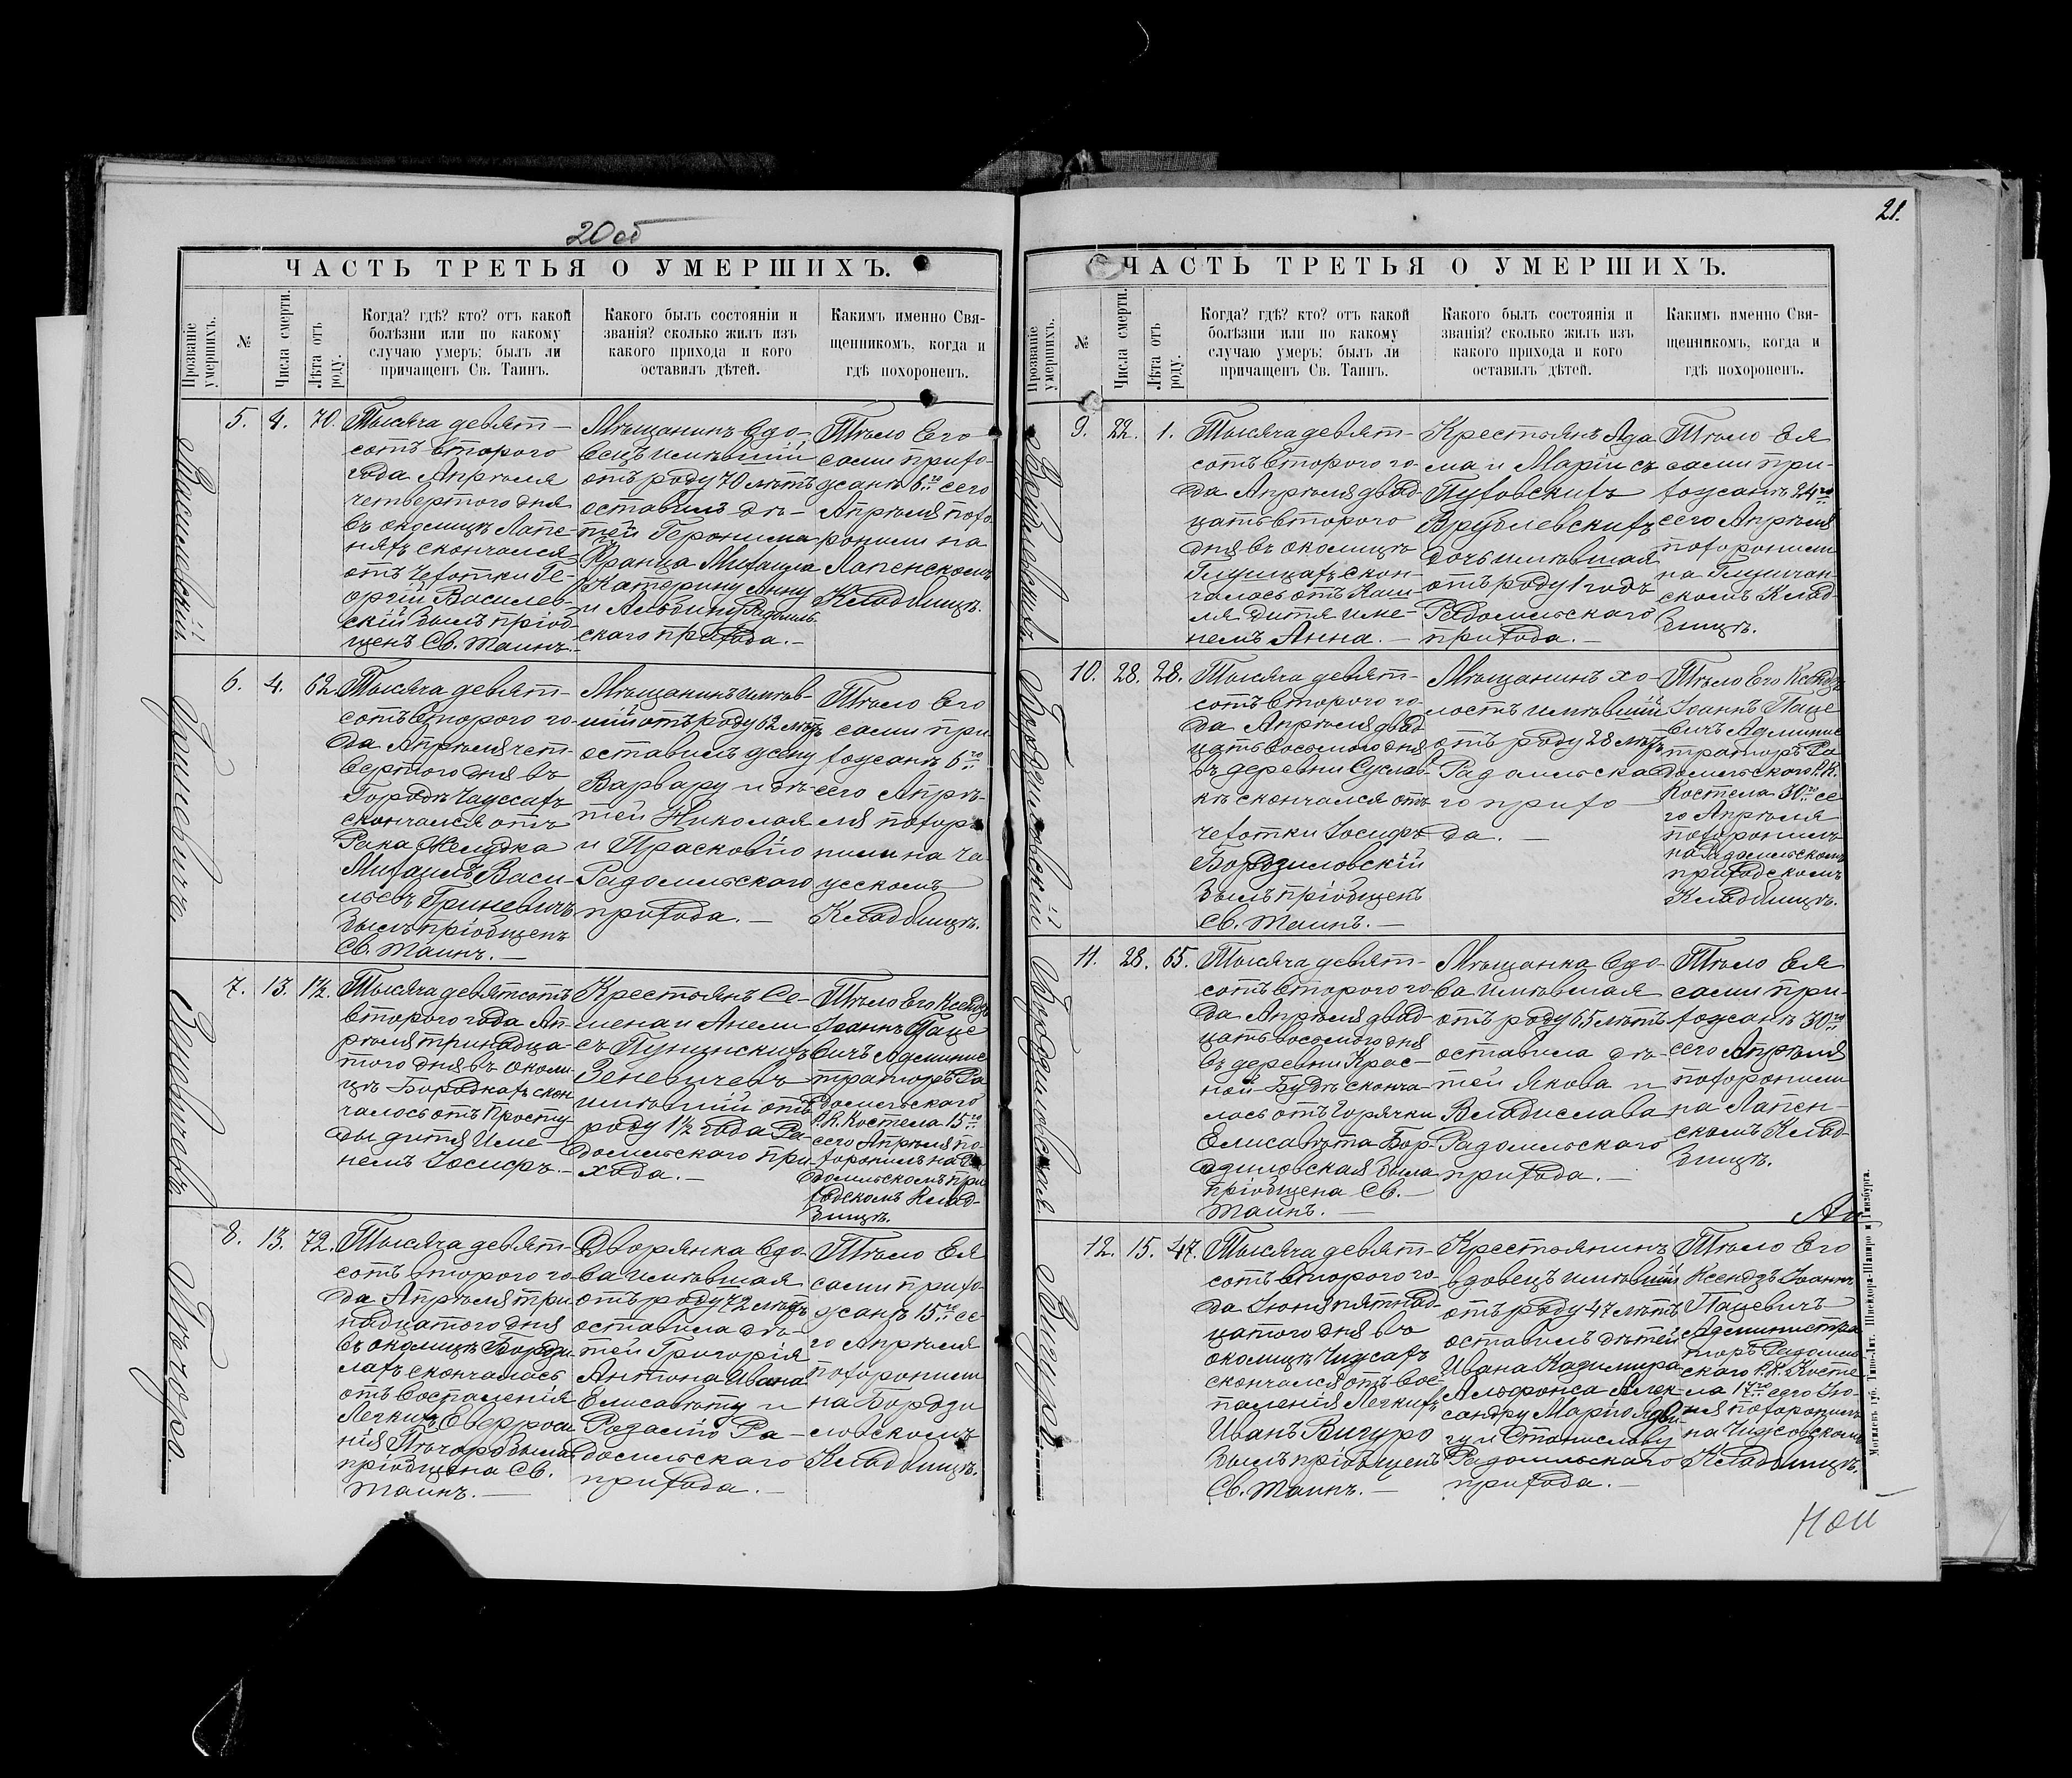 20 об
ЧАСТЬ ТРЕТЬЯ О УМЕРШИХЪ.
Прозваніе умершихъ.
№
Числа смерти.
Лѣта отъ роду.
Когда? гдѣ? кто? отъ какой
болѣзни или по какому
случаю умеръ; былъ ли
причащенъ Св. Таинъ.
Какого былъ состоянія и
званія? сколько жилъ изъ
какого прихода и кого
оставилъ дѣтей.
Какимъ именно Свя-
щенникомъ, когда и
гдѣ похороненъ.
Василевскій.
5.
4.
70.
Тысяча девят-
сотъ второго
года Апрѣля
четвертого дня
въ околицѣ Лапе-
няхъ скончался
отъ Чехотки Ге-
оргій Василев-
скій былъ пріоб-
щенъ Св. Таинъ.-
Мѣщанинъ вдо-
вецъ имѣвшій
отъ роду 70 лѣтъ
оставилъ дѣ-
тей Геронима
Франца Михаила
Катерину Анну
и Альбину Радомль-
скаго прихода.-
Тѣло Его
сами прихо-
жанѣ 6го сего
Апрѣля похо-
ронили на
Лапенскомъ
Кладбищѣ.
Гриневичъ.
6.
4.
62.
Тысяча девят-
сотъ второго го-
да Апрѣля чет-
вертого дня въ
Городѣ Чауссахъ
скончался отъ
Рака Желудка
Михаилъ Васи-
льевъ Гриневичъ
былъ пріобщенъ
Св. Таинъ.-
Мѣщанинъ имѣв-
шій отъ роду 62 лѣтъ
оставилъ жену
Варвару и дѣ-
тей Николая
и Прасковію
Радомльскаго
прихода.-
Тѣло Его
сами при
хожанѣ 6го
сего Апрѣ-
ля похор-
нили на Ча-
усскомъ
Кладбищѣ.
Зеневичовъ
7.
13.
1½.
Тысяча девятсотъ
второго года Ап-
рѣля тринадца-
того дня въ околи-
цѣ Бороднахъ скон-
чалось отъ Просту
ды дитя Име-
немъ Іосифъ.-
Крестьянъ Се-
мена и Анели
съ Пунинскихъ
Зеневичевъ
имѣвшій отъ
роду 1½ года Ра-
домльскаго при-
хода.-
Тѣло Его Ксендзъ
Іоаннъ Паце
вичъ Админис
траторъ Ра
домльскаго
Р.К. Костела 15го
сего Апрѣля по-
хоронилъ на Ра-
домльскомъ при
ходскомъ Клад-
бищѣ.
8.
13.
72.
Тысяча девят-
сотъ второго го-
да Апрѣля три
надцатого дня
въ околицѣ Бордзи
лахъ скончалась
отъ воспаленія
Легкихъ Евфроси
нія Пѣчора была
пріобщена Св.
Таинъ.-
Дворянка вдо-
ва имѣвшая
отъ роду 72 лѣтъ
оставила дѣ-
тей Григорія
Антона Ивана
Елисавѣту и
Розалію Ра-
домльскаго
прихода.-
Тѣло Ея
сами прихо-
жанѣ 15го се-
го Апрѣля
похоронили
на Бордзи
ловскомъ
Кладбищѣ.
21.
ЧАСТЬ ТРЕТЬЯ О УМЕРШИХЪ.
Прозваніе умершихъ.
№
Числа смерти.
Лѣта отъ роду.
Когда? гдѣ? кто? отъ какой
болѣзни или по какому
случаю умеръ; былъ ли
причащенъ Св. Таинъ.
Какого былъ состоянія и
званія? сколько жилъ изъ
какого прихода и кого
оставилъ дѣтей.
Какимъ именно Свя-
щенникомъ, когда и
гдѣ похороненъ.
Врублевскихъ
9.
22.
1.
Тысяча девят-
сотъ второго го-
да Апрѣля двад-
цать второго
дня въ околицѣ
скон-
чалось отъ Каш-
ля дитя име-
немъ Анна.-
Крестьянъ Ада
ма и Маріи съ
Врублевскихъ
дочь имѣвшая
отъ роду 1 годъ
Радомльскаго
прихода.-
Тѣло Ея
сами при-
хожанѣ 24го
сего Апрѣля
похоронили
на
скомъ Клад-
бищѣ.
Бордзиловскій
10.
28.
28.
Тысяча девят-
сотъ второго го-
да Апрѣля двад
цать восьмого дня
въ деревни Суслов-
кѣ скончался отъ
чехотки Іосифъ
Бордзиловскій
былъ пріобщенъ
Св. Таинъ.-
Мѣщанинъ хо-
лостъ имѣвшій
отъ роду 28 лѣтъ
Радомльска
го прихо-
да.-
Тѣло Его Ксендзъ
Іоаннъ Паце
вичъ Админис
траторъ Ра
домльскаго Р.К.
Костела 30го се
го Апрѣля
похоронилъ
на Радомльскомъ
приходскомъ
Кладбищѣ.
Бордзиловская.
11.
28.
65.
Тысяча девят-
сотъ второго го-
да Апрѣля двад-
цать восьмого дня
въ деревни Крас-
ной-Будѣ сконча-
лась отъ Горячки
Елисавѣта Бор-
дзиловская была
пріобщена Св.-
Таинъ.-
Мѣщанка вдо-
ва имѣвшая
отъ роду 65 лѣтъ
оставила дѣ-
тей Якова и
Владислава
Радомльскаго
прихода.-
Тѣло Ея
сами при-
хожанѣ 30го
сего Апрѣля
похоронили
на Лапен-
скомъ Клад-
бищѣ.
Вигуро.
12.
15.
47.
Тысяча девят-
сотъ второго го-
да Іюня пятнад-
цатого дня во
околицѣ Чижахъ
скончался отъ вос-
паленія Легкихъ
Иванъ Вигуро
былъ пріобщенъ
Св. Таинъ.-
Крестьянинъ
вдовецъ имѣвшій
отъ роду 47 лѣтъ
оставилъ дѣтей
Ивана Казимира
Альфонса Алек-
сандру Марію Ядви-
гу и Станиславу
Радомльскаго
прихода.-
Тѣло Его
Ксендзъ Іоаннъ
Пацевичъ
Администра
торъ Радомль
скаго Р.К. Косте
ла 17го сего Ію-
ня похоронилъ
на Чижовскомъ
Кладбищѣ.
Могилевъ губ. Типо-Лит. Шнейдора-Шапиро и Гинзбурга.